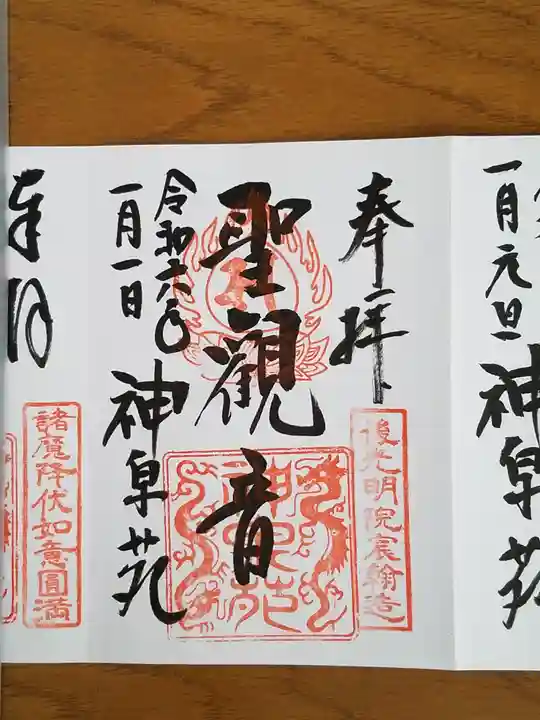 一月元旦
神泉苑
奉拝
後光明院宸翰造
聖観音
神泉苑
令和六年
一月一日
神泉苑
奉拝
諸魔降伏如意圓満